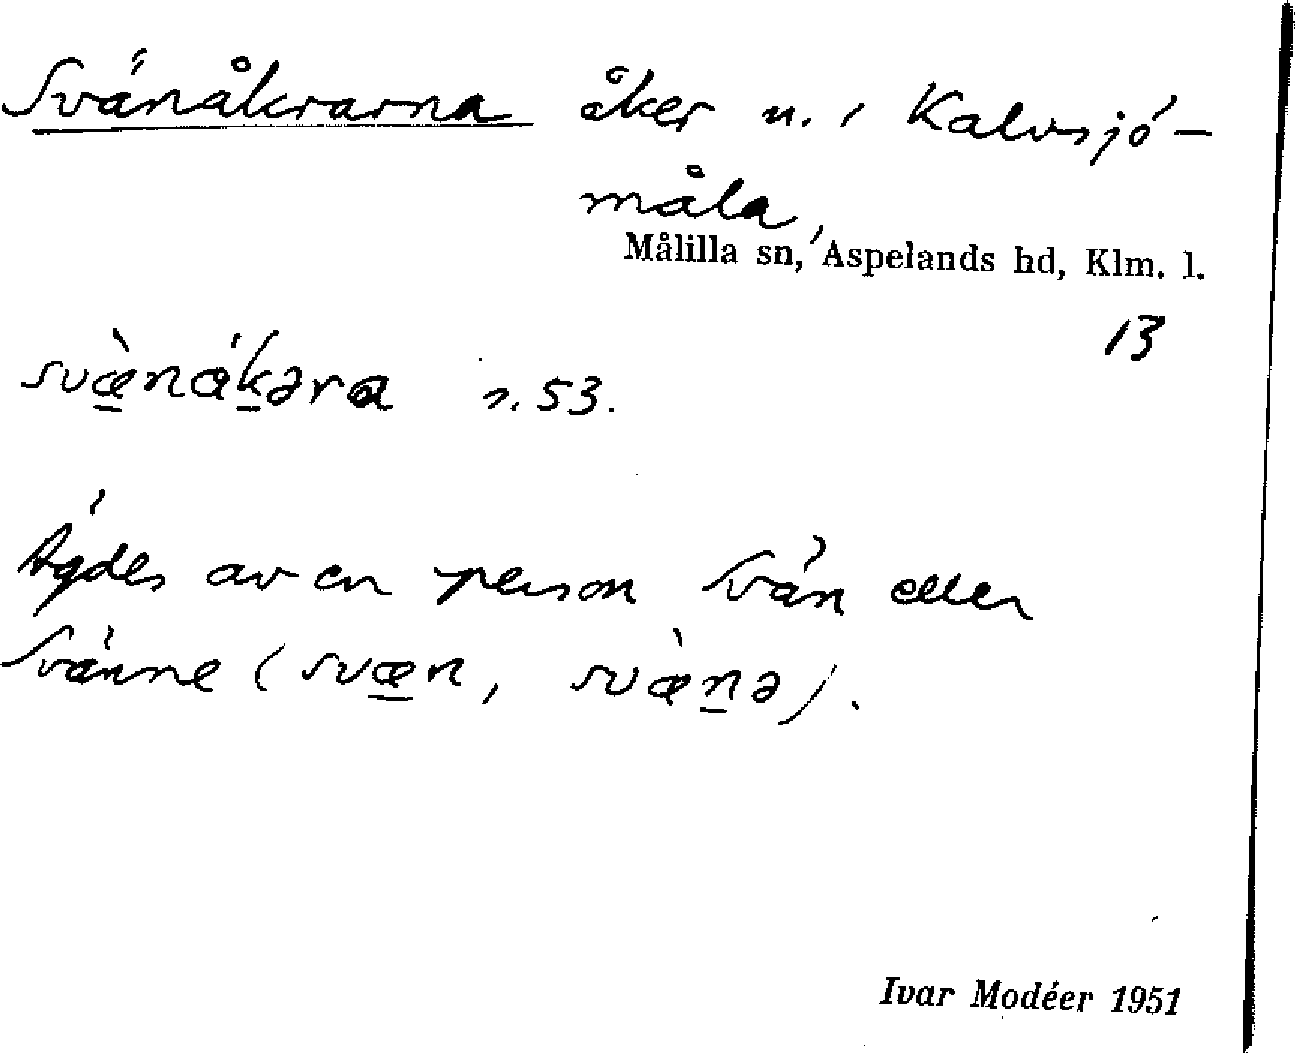 Svänåkrarna åker n. i Kalvsjö-
måla,
Målilla sn, Aspelands hd, Klm. l.
13
svæ̀nákəra s. 53.
Ägdes av en person Svän eller
Svänne (svæn, svæ̀nə).
Ivar Modéer 1951